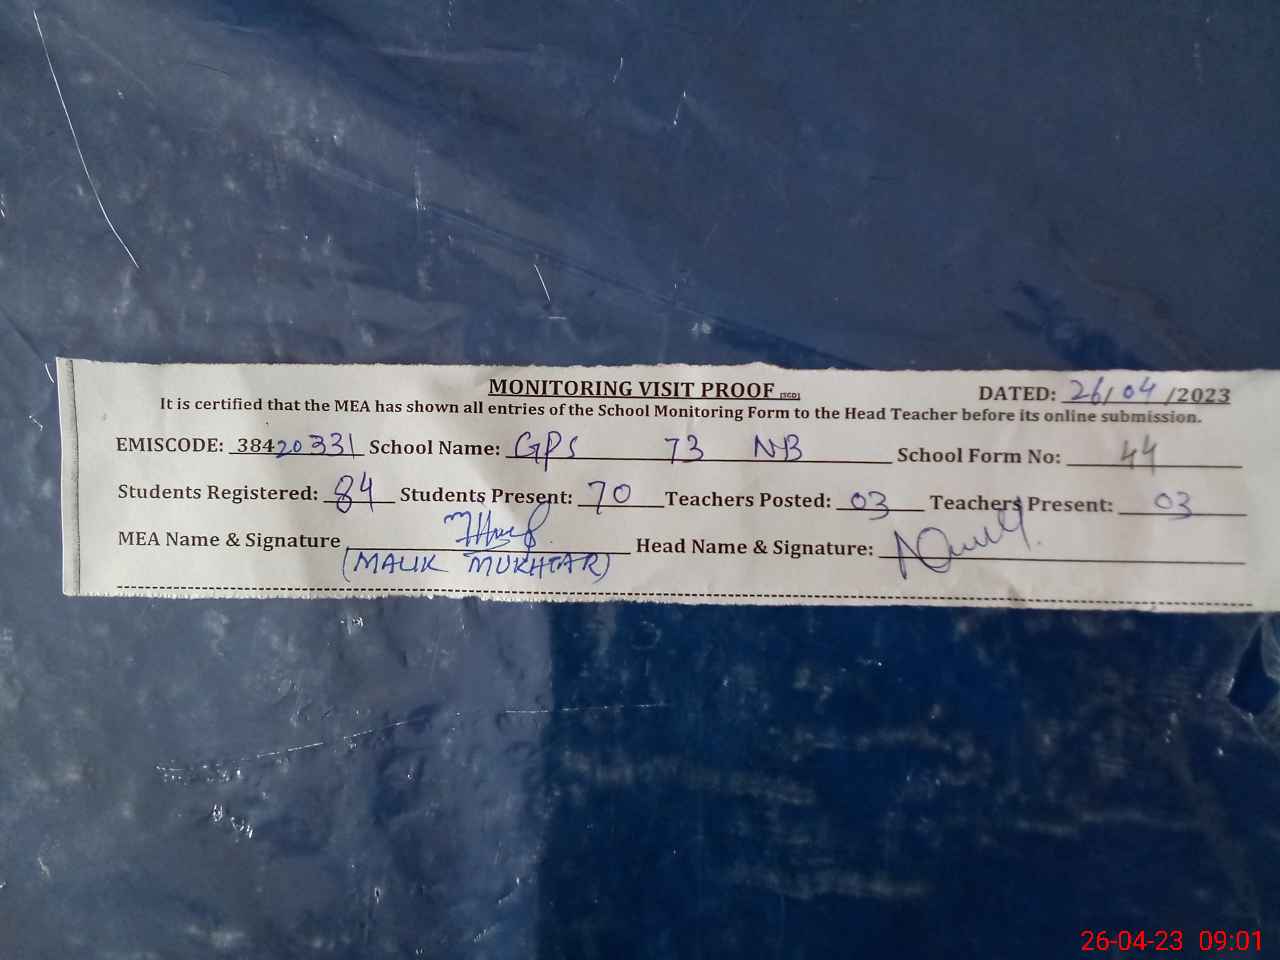 MONITORING VISIT PROOF (SGD) DATED: 26/04/2023
It is certified that the MEA has shown all entries of the School Monitoring Form to the Head Teacher before its online submission.
EMISCODE: 38420331 School Name: GPS 73 NB School Form No: 44
Students Registered: 84 Students Present: 70 Teachers Posted: 03 Teachers Present: 03
MEA Name & Signature Head Name & Signature:
(MALIK MUKHTAR)
26-04-23 09:01